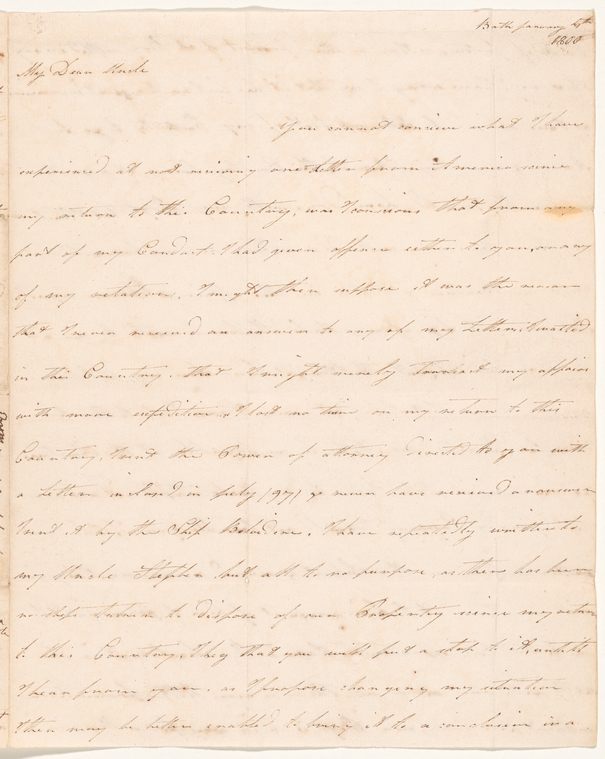 Bath January 4th
1800
My Dear Uncle
You cannot concieve what I have
experienced at not reciving one Letter from America since
my return to this Country, was I concious that from any
part of my Conduct I had given offence either to you, or any
of my relations, I might then suppose it was the reason
that I never received an answer to any of my Letters I
in this Country. that I might Transact my affairs
with more expedition I lost no time on my return to this
Country, I sent the Power of attorney directed to you with
a Letter inclosed in July 1797 & never have recived an answer
I sent it by the Ship Belvidere. I have repeatedly written to
my Uncle Stephen, but all to no purpose, as there has been
no steps taken to dispose of our Property since my return
to this Country. I beg that you will put a stop to it, untill
I hear from you. as I propose changing my situation
I then may be better enabled to bring it to a conclusion in a